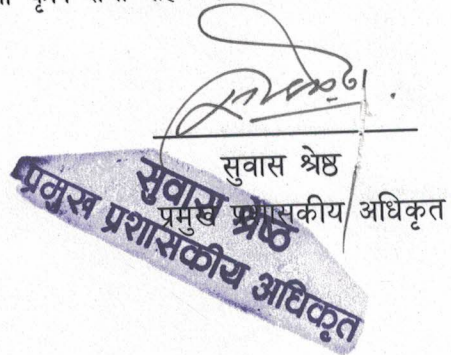 सुवास श्रेष्ठ
प्रमुख प्रशासकीय अधिकृत
सुवास श्रेष्ठ
प्रमुख प्रशासकीय अधिकृत